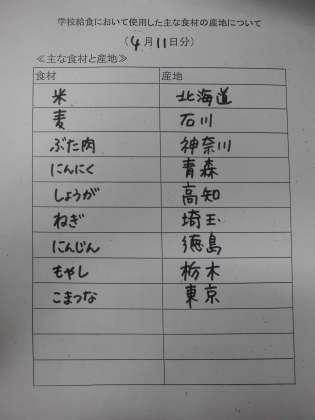 学校給食において使用した主な食材の産地について
(4月11日分)
≪主な食材と産地≫
食材 産地
米 北海道
麦 石川
ぶた肉 神奈川
にんにく 青森
しょうが 高知
ねぎ 埼玉
にんじん 徳島
もやし 栃木
こまつな 東京